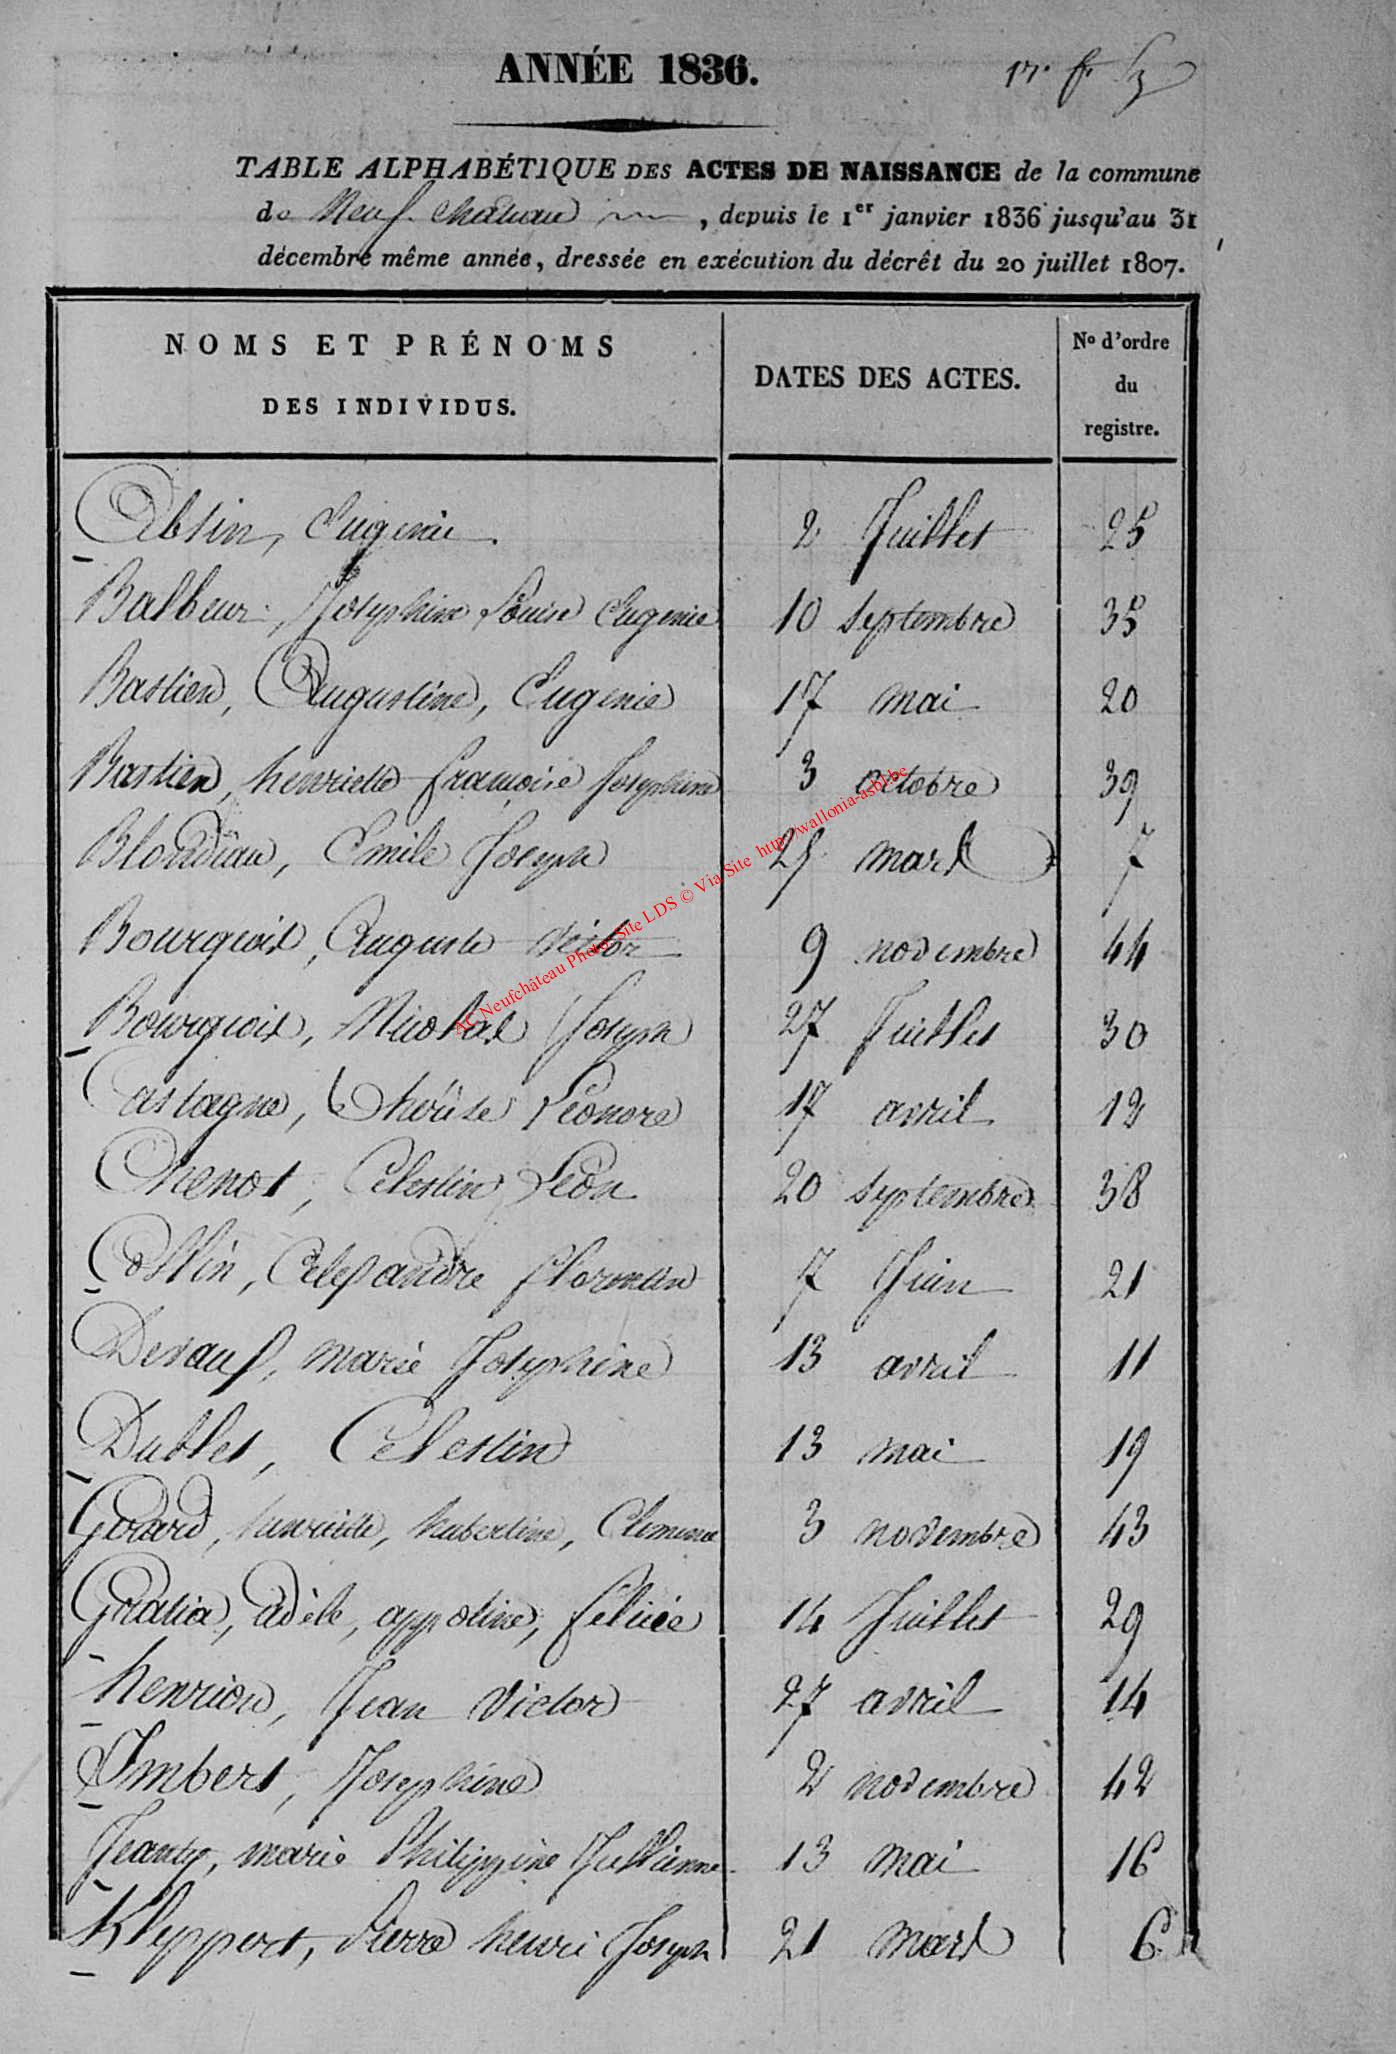 ANNÉE 1836.
TABLE ALPHABÉTIQUE DES ACTES DE NAISSANCE de la commune
de Neufchateau, depuis le 1er janvier 1836 jusqu'au 31
décembre même année, dressée en exécution du décrêt du 20 juillet 1807.
NOMS ET PRÉNOMS
DES INDIVIDUS.
DATES DES ACTES.
No d'ordre
du
registre.
Absin, Eugenie. 2 Juillet 25
Balbeur, Josephine Louise Eugenie 10 septembre 35
Bastien, Augustine, Eugenie 17 mai 20
Bastien, henriette françoise Josephine 3 octobre 39
Blondiau, Emile Joseph 25 mars 7
Bourgeois, Auguste victor 9 novembre 44
Bourgeois, Nicolas Joseph 27 Juillet 30
Castagne, Thérèse Léonore 17 avril 12
Chenot, Celestin Léon 20 septembre 38
Collin, Alexandre florentin 7 Juin 21
Devaux, marie Josephine 13 avril 11
Dublet, Celestin 13 mai 19
Gerard, henriette, hubertine, Clemence 3 novembre 43
Gratia, adèle, appoline, felicie 14 Juillet 29
henrion, Jean victor 27 avril 14
Imbert, Josephine 2 novembre 42
Jeanty, marie Philippine Jullienne 13 mai 16
Kleppert, Pierre henri Joseph 21 mars 6
AC Neufchâteau Photos Site LDS © Via Site http://wallonia-asbl.be